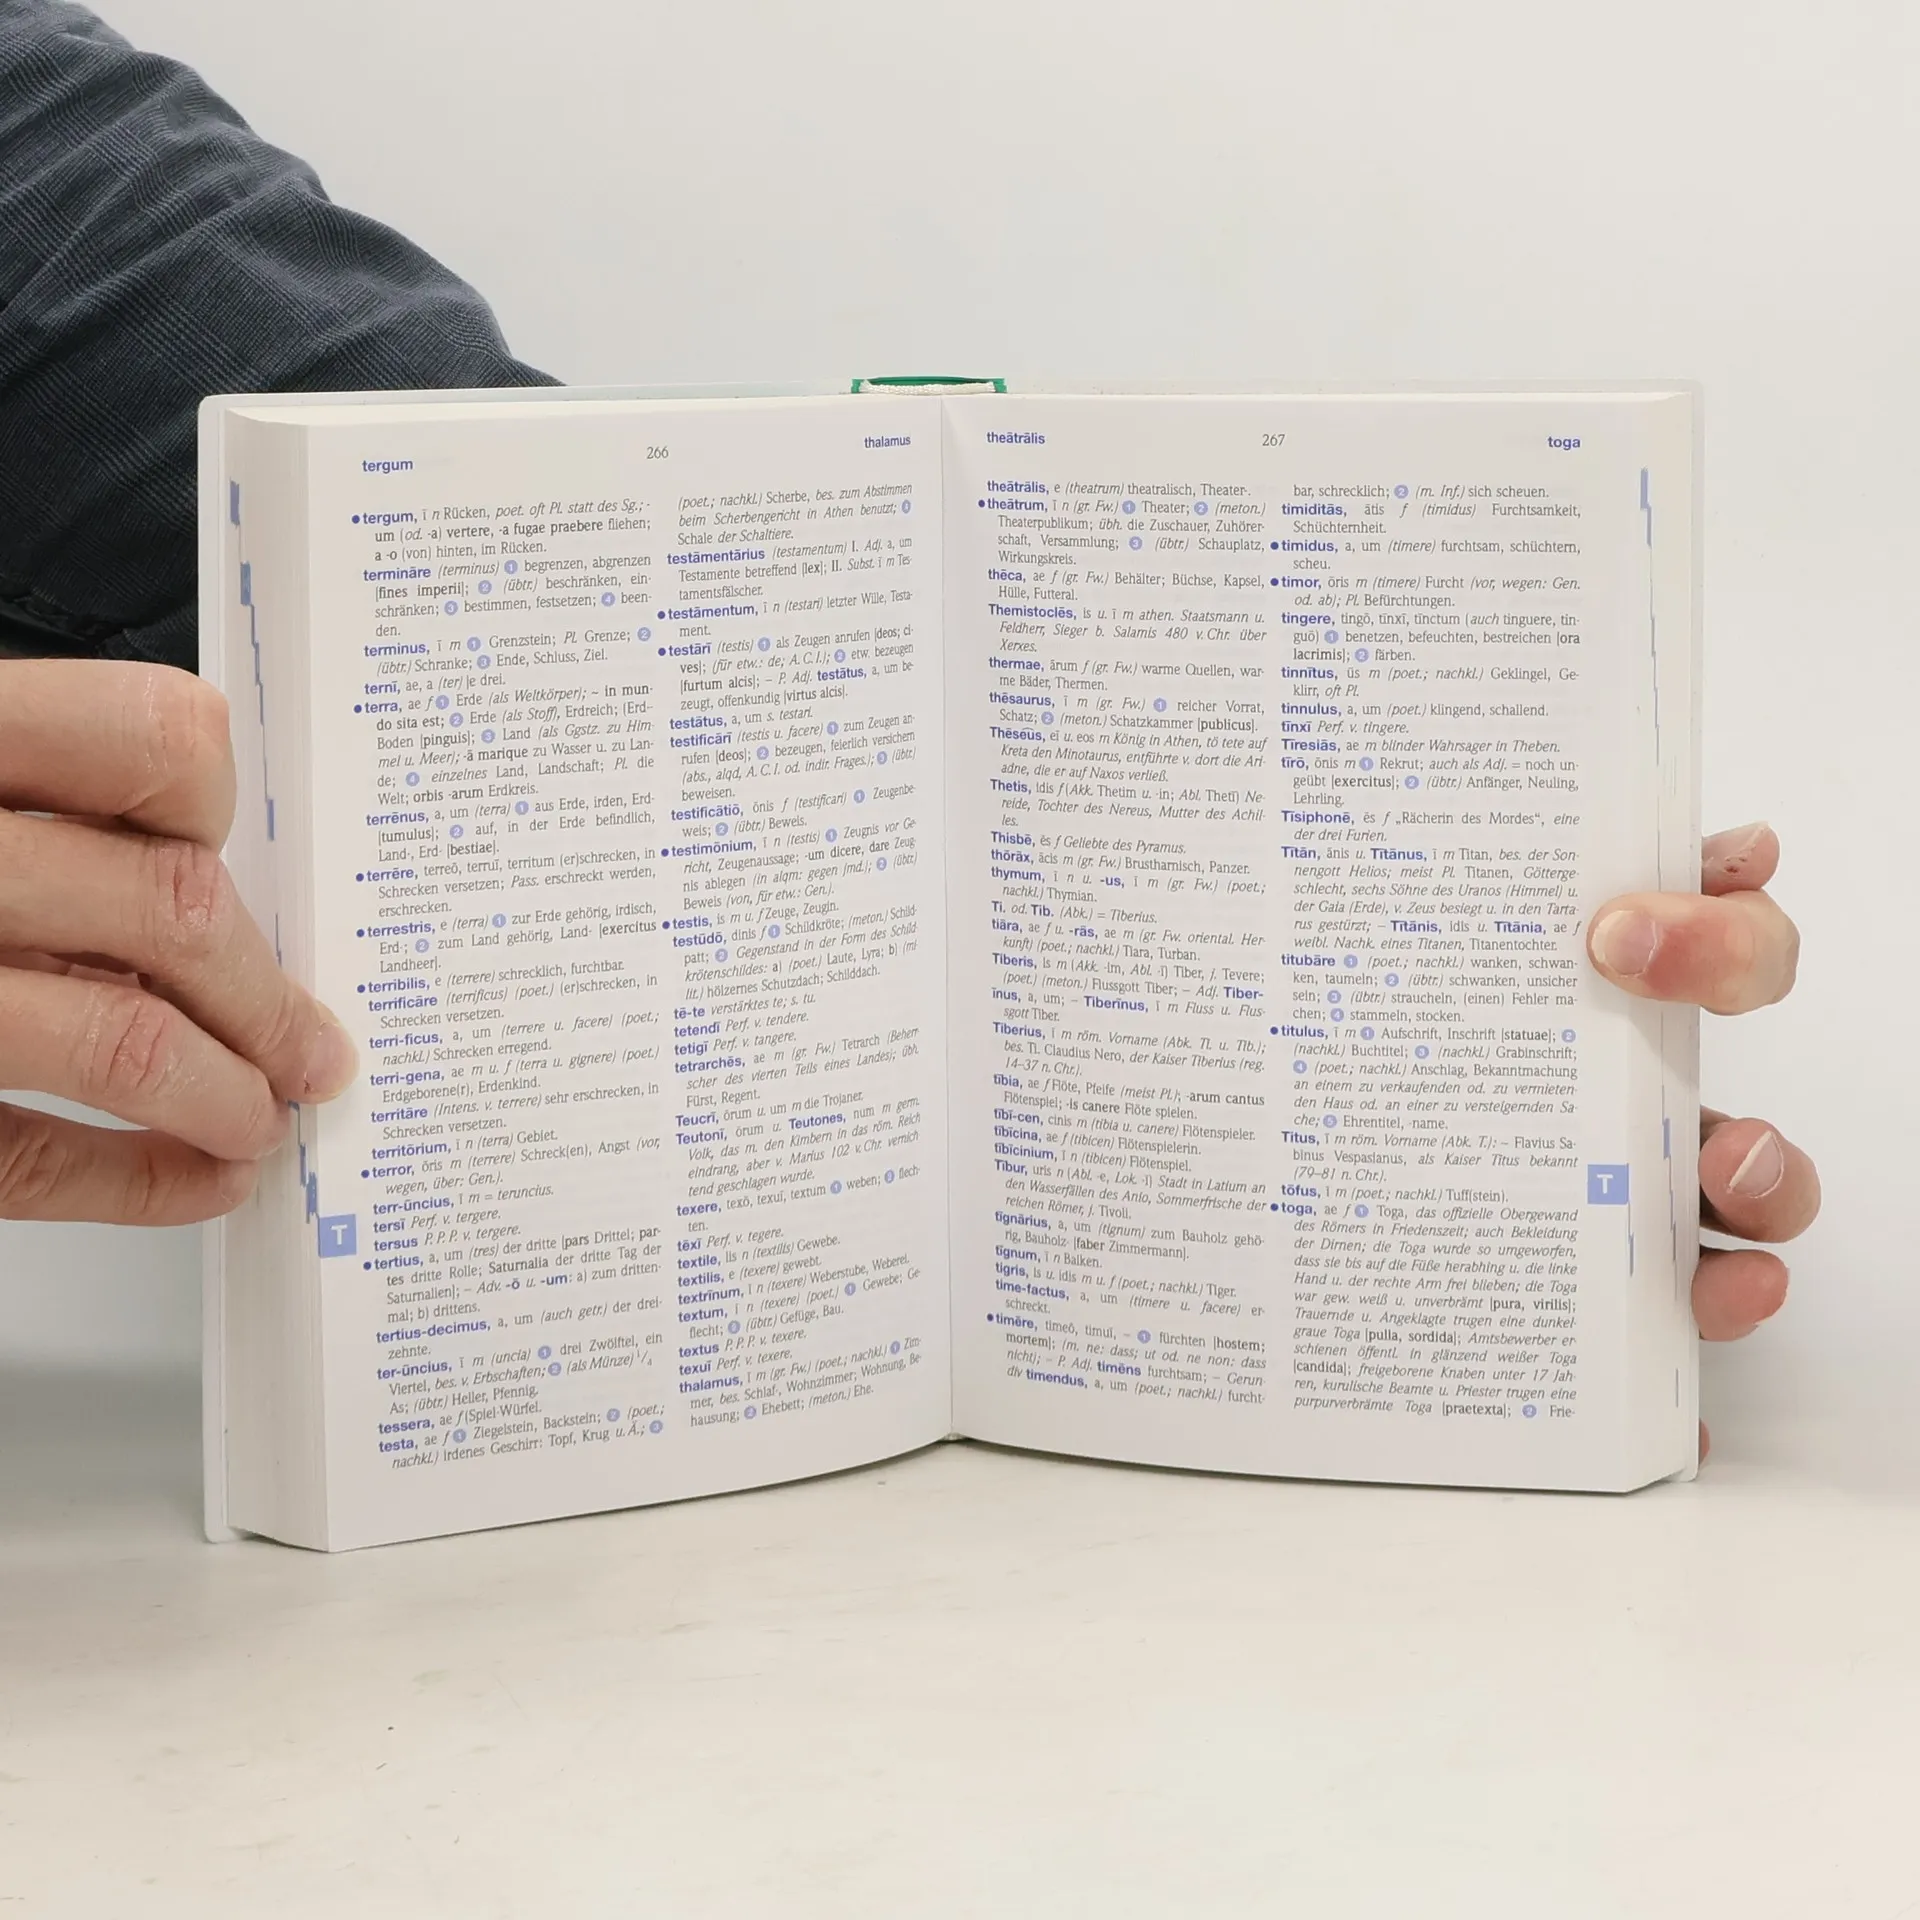 tergum
266
thalamus
● tergum, ī n Rücken, poet. oft Pl. statt des Sg.; -
um (od. -a) vertere, -a fugae praebere fliehen;
a -o (von) hinten, im Rücken.
termināre (terminus) ① begrenzen, abgrenzen
[fines imperii]; ② (übtr.) beschränken, ein-
schränken; ③ bestimmen, festsetzen; ④ been-
den.
terminus, ī m ① Grenzstein; Pl. Grenze; ②
(übtr.) Schranke; ③ Ende, Schluss, Ziel.
ternī, ae, a (ter) je drei.
● terra, ae f ① Erde (als Weltkörper); ~ in mun-
do sita est; ② Erde (als Stoff), Erdreich; (Erd-)
Boden [pinguis]; ③ Land (als Ggstz. zu Him-
mel u. Meer); -ā marique zu Wasser u. zu Lan-
de; ④ einzelnes Land, Landschaft; Pl. die
Welt; orbis -arum Erdkreis.
terrēnus, a, um (terra) ① aus Erde, irden, Erd-
[tumulus]; ② auf, in der Erde befindlich,
Land-, Erd- [bestiae].
● terrēre, terreō, terruī, territum (er)schrecken, in
Schrecken versetzen; Pass. erschreckt werden,
erschrecken.
● terrestris, e (terra) ① zur Erde gehörig, irdisch,
Erd-; ② zum Land gehörig, Land- [exercitus
Landheer].
● terribilis, e (terrere) schrecklich, furchtbar.
terrificāre (terrificus) (poet.) (er)schrecken, in
Schrecken versetzen.
terri-ficus, a, um (terrere u. facere) (poet.;
nachkl.) Schrecken erregend.
terri-gena, ae m u. f (terra u. gignere) (poet.)
Erdgeborene(r), Erdenkind.
territāre (Intens. v. terrere) sehr erschrecken, in
Schrecken versetzen.
territōrium, ī n (terra) Gebiet.
● terror, ōris m (terrere) Schreck(en), Angst (vor,
wegen, über: Gen.).
terr-ūncius, ī m = teruncius.
tersī Perf. v. tergere.
tersus P. P. P. v. tergere.
● tertius, a, um (tres) der dritte [pars Drittel; par-
tes dritte Rolle; Saturnalia der dritte Tag der
Saturnalien]; – Adv. -ō u. -um: a) zum dritten-
mal; b) drittens.
tertius-decimus, a, um (auch getr.) der drei-
zehnte.
ter-ūncius, ī m (uncia) ① drei Zwölftel, ein
Viertel, bes. v. Erbschaften; ② (als Münze) 1/4
As; (übtr.) Heller, Pfennig.
tessera, ae f (Spiel-)Würfel.
testa, ae f ① Ziegelstein, Backstein; ② (poet.;
nachkl.) irdenes Geschirr: Topf, Krug u. Ä.; ③
(poet.; nachkl.) Scherbe, bes. zum Abstimmen
beim Scherbengericht in Athen benutzt; ④
Schale der Schaltiere.
testāmentārius (testamentum) I. Adj. a, um
Testamente betreffend [lex]; II. Subst. ī m Tes-
tamentsfälscher.
● testāmentum, ī n (testari) letzter Wille, Testa-
ment.
● testārī (testis) ① als Zeugen anrufen [deos; ci-
ves]; (für etw.: de; A. C. I.); ② etw. bezeugen
[furtum alcis]; – P. Adj. testātus, a, um be-
zeugt, offenkundig [virtus alcis].
testātus, a, um s. testari.
testificārī (testis u. facere) ① zum Zeugen an-
rufen [deos]; ② bezeugen, feierlich versichern
(abs., alqd, A. C. I. od. indir. Frages.); ③ (übtr.)
beweisen.
testificātiō, ōnis f (testificari) ① Zeugenbe-
weis; ② (übtr.) Beweis.
● testimōnium, ī n (testis) ① Zeugnis vor Ge-
richt, Zeugenaussage; -um dicere, dare Zeug-
nis ablegen (in alqm: gegen jmd.); ② (übtr.)
Beweis (von, für etw.: Gen.).
● testis, is m u. f Zeuge, Zeugin.
testūdō, dinis f ① Schildkröte; (meton.) Schild-
patt; ② Gegenstand in der Form des Schild-
krötenschildes: a) (poet.) Laute, Lyra; b) (mi-
lit.) hölzernes Schutzdach; Schilddach.
tē-te verstärktes te; s. tu.
tetendī Perf. v. tendere.
tetigī Perf. v. tangere.
tetrarchēs, ae m (gr. Fw.) Tetrarch (Beherr-
scher des vierten Teils eines Landes); übh.
Fürst, Regent.
Teucrī, ōrum u. um m die Trojaner.
Teutonī, ōrum u. Teutones, num m germ.
Volk, das m. den Kimbern in das röm. Reich
eindrang, aber v. Marius 102 v. Chr. vernich-
tend geschlagen wurde.
texere, texō, texuī, textum ① weben; ② flech-
ten.
tēxī Perf. v. tegere.
textile, lis n (textilis) Gewebe.
textilis, e (texere) gewebt.
textrīnum, ī n (texere) Weberstube, Weberei.
textum, ī n (texere) (poet.) ① Gewebe; Ge-
flecht; ② (übtr.) Gefüge, Bau.
textus P. P. P. v. texere.
texuī Perf. v. texere.
thalamus, ī m (gr. Fw.) (poet.; nachkl.) ① Zim-
mer, bes. Schlaf-, Wohnzimmer; Wohnung, Be-
hausung; ② Ehebett; (meton.) Ehe.
T
theātrālis
267
toga
theātrālis, e (theatrum) theatralisch, Theater-.
● theātrum, ī n (gr. Fw.) ① Theater; ② (meton.)
Theaterpublikum; übh. die Zuschauer, Zuhörer-
schaft, Versammlung; ③ (übtr.) Schauplatz,
Wirkungskreis.
thēca, ae f (gr. Fw.) Behälter; Büchse, Kapsel,
Hülle, Futteral.
Themistoclēs, is u. ī m athen. Staatsmann u.
Feldherr, Sieger b. Salamis 480 v. Chr. über
Xerxes.
thermae, ārum f (gr. Fw.) warme Quellen, war-
me Bäder, Thermen.
thēsaurus, ī m (gr. Fw.) ① reicher Vorrat,
Schatz; ② (meton.) Schatzkammer [publicus].
Thēseus, eī u. eos m König in Athen, tö tete auf
Kreta den Minotaurus, entführte v. dort die Ari-
adne, die er auf Naxos verließ.
Thetis, idis f (Akk. Thetim u. -in; Abl. Thetī) Ne-
reide, Tochter des Nereus, Mutter des Achil-
les.
Thisbē, ēs f Geliebte des Pyramus.
thōrāx, ācis m (gr. Fw.) Brustharnisch, Panzer.
thymum, ī n u. -us, ī m (gr. Fw.) (poet.;
nachkl.) Thymian.
Ti. od. Tib. (Abk.) = Tiberius.
tiāra, ae f u. -rās, ae m (gr. Fw. oriental. Her-
kunft) (poet.; nachkl.) Tiara, Turban.
Tiberis, is m (Akk. -im, Abl. -ī) Tiber, j. Tevere;
(poet.) (meton.) Flussgott Tiber; – Adj. Tiber-
īnus, a, um; – Tiberīnus, ī m Fluss u. Flus-
sgott Tiber.
Tiberius, ī m röm. Vorname (Abk. Ti. u. Tib.);
bes. Ti. Claudius Nero, der Kaiser Tiberius (reg.
14–37 n. Chr.).
tībia, ae f Flöte, Pfeife (meist Pl.); -arum cantus
Flötenspiel; -is canere Flöte spielen.
tībī-cen, cinis m (tibia u. canere) Flötenspieler.
tībīcina, ae f (tibicen) Flötenspielerin.
tībīcinium, ī n (tibicen) Flötenspiel.
Tībur, uris n (Abl. -e, Lok. -ī) Stadt in Latium an
den Wasserfällen des Anio, Sommerfrische der
reichen Römer, j. Tivoli.
tīgnārius, a, um (tignum) zum Bauholz gehö-
rig, Bauholz- [faber Zimmermann].
tīgnum, ī n Balken.
tigris, is u. idis m u. f (poet.; nachkl.) Tiger.
time-factus, a, um (timere u. facere) er-
schreckt.
● timēre, timeō, timuī, – ① fürchten [hostem;
mortem]; (m. ne: dass; ut od. ne non: dass
nicht); – P. Adj. timēns furchtsam; – Gerun-
div timendus, a, um (poet.; nachkl.) furcht-
bar, schrecklich; ② (m. Inf.) sich scheuen.
timiditās, ātis f (timidus) Furchtsamkeit,
Schüchternheit.
● timidus, a, um (timere) furchtsam, schüchtern,
scheu.
● timor, ōris m (timere) Furcht (vor, wegen: Gen.
od. ab); Pl. Befürchtungen.
tingere, tingō, tīnxī, tīnctum (auch tinguere, tin-
guō) ① benetzen, befeuchten, bestreichen [ora
lacrimis]; ② färben.
tinnītus, ūs m (poet.; nachkl.) Geklingel, Ge-
klirr, oft Pl.
tinnulus, a, um (poet.) klingend, schallend.
tīnxī Perf. v. tingere.
Tīresiās, ae m blinder Wahrsager in Theben.
tīrō, ōnis m ① Rekrut; auch als Adj. = noch un-
geübt [exercitus]; ② (übtr.) Anfänger, Neuling,
Lehrling.
Tīsiphonē, ēs f „Rächerin des Mordes“, eine
der drei Furien.
Tītān, ānis u. Tītānus, ī m Titan, bes. der Son-
nengott Helios; meist Pl. Titanen, Götterge-
schlecht, sechs Söhne des Uranos (Himmel) u.
der Gaia (Erde), v. Zeus besiegt u. in den Tarta-
rus gestürzt; – Tītānis, idis u. Tītānia, ae f
weibl. Nachk. eines Titanen, Titanentochter.
titubāre ① (poet.; nachkl.) wanken, schwan-
ken, taumeln; ② (übtr.) schwanken, unsicher
sein; ③ (übtr.) straucheln, (einen) Fehler ma-
chen; ④ stammeln, stocken.
● titulus, ī m ① Aufschrift, Inschrift [statuae]; ②
(nachkl.) Buchtitel; ③ (nachkl.) Grabinschrift;
④ (poet.; nachkl.) Anschlag, Bekanntmachung
an einem zu verkaufenden od. zu vermieten-
den Haus od. an einer zu versteigernden Sa-
che; ⑤ Ehrentitel, -name.
Titus, ī m röm. Vorname (Abk. T.): – Flavius Sa-
binus Vespasianus, als Kaiser Titus bekannt
(79–81 n. Chr.).
tōfus, ī m (poet.; nachkl.) Tuff(stein).
● toga, ae f ① Toga, das offizielle Obergewand
des Römers in Friedenszeit; auch Bekleidung
der Dirnen; die Toga wurde so umgeworfen,
dass sie bis auf die Füße herabhing u. die linke
Hand u. der rechte Arm frei blieben; die Toga
war gew. weiß u. unverbrämt [pura, virilis];
Trauernde u. Angeklagte trugen eine dunkel-
graue Toga [pulla, sordida]; Amtsbewerber er-
schienen öffentl. in glänzend weißer Toga
[candida]; freigeborene Knaben unter 17 Jah-
ren, kurulische Beamte u. Priester trugen eine
purpurverbrämte Toga [praetexta]; ② Frie-
T